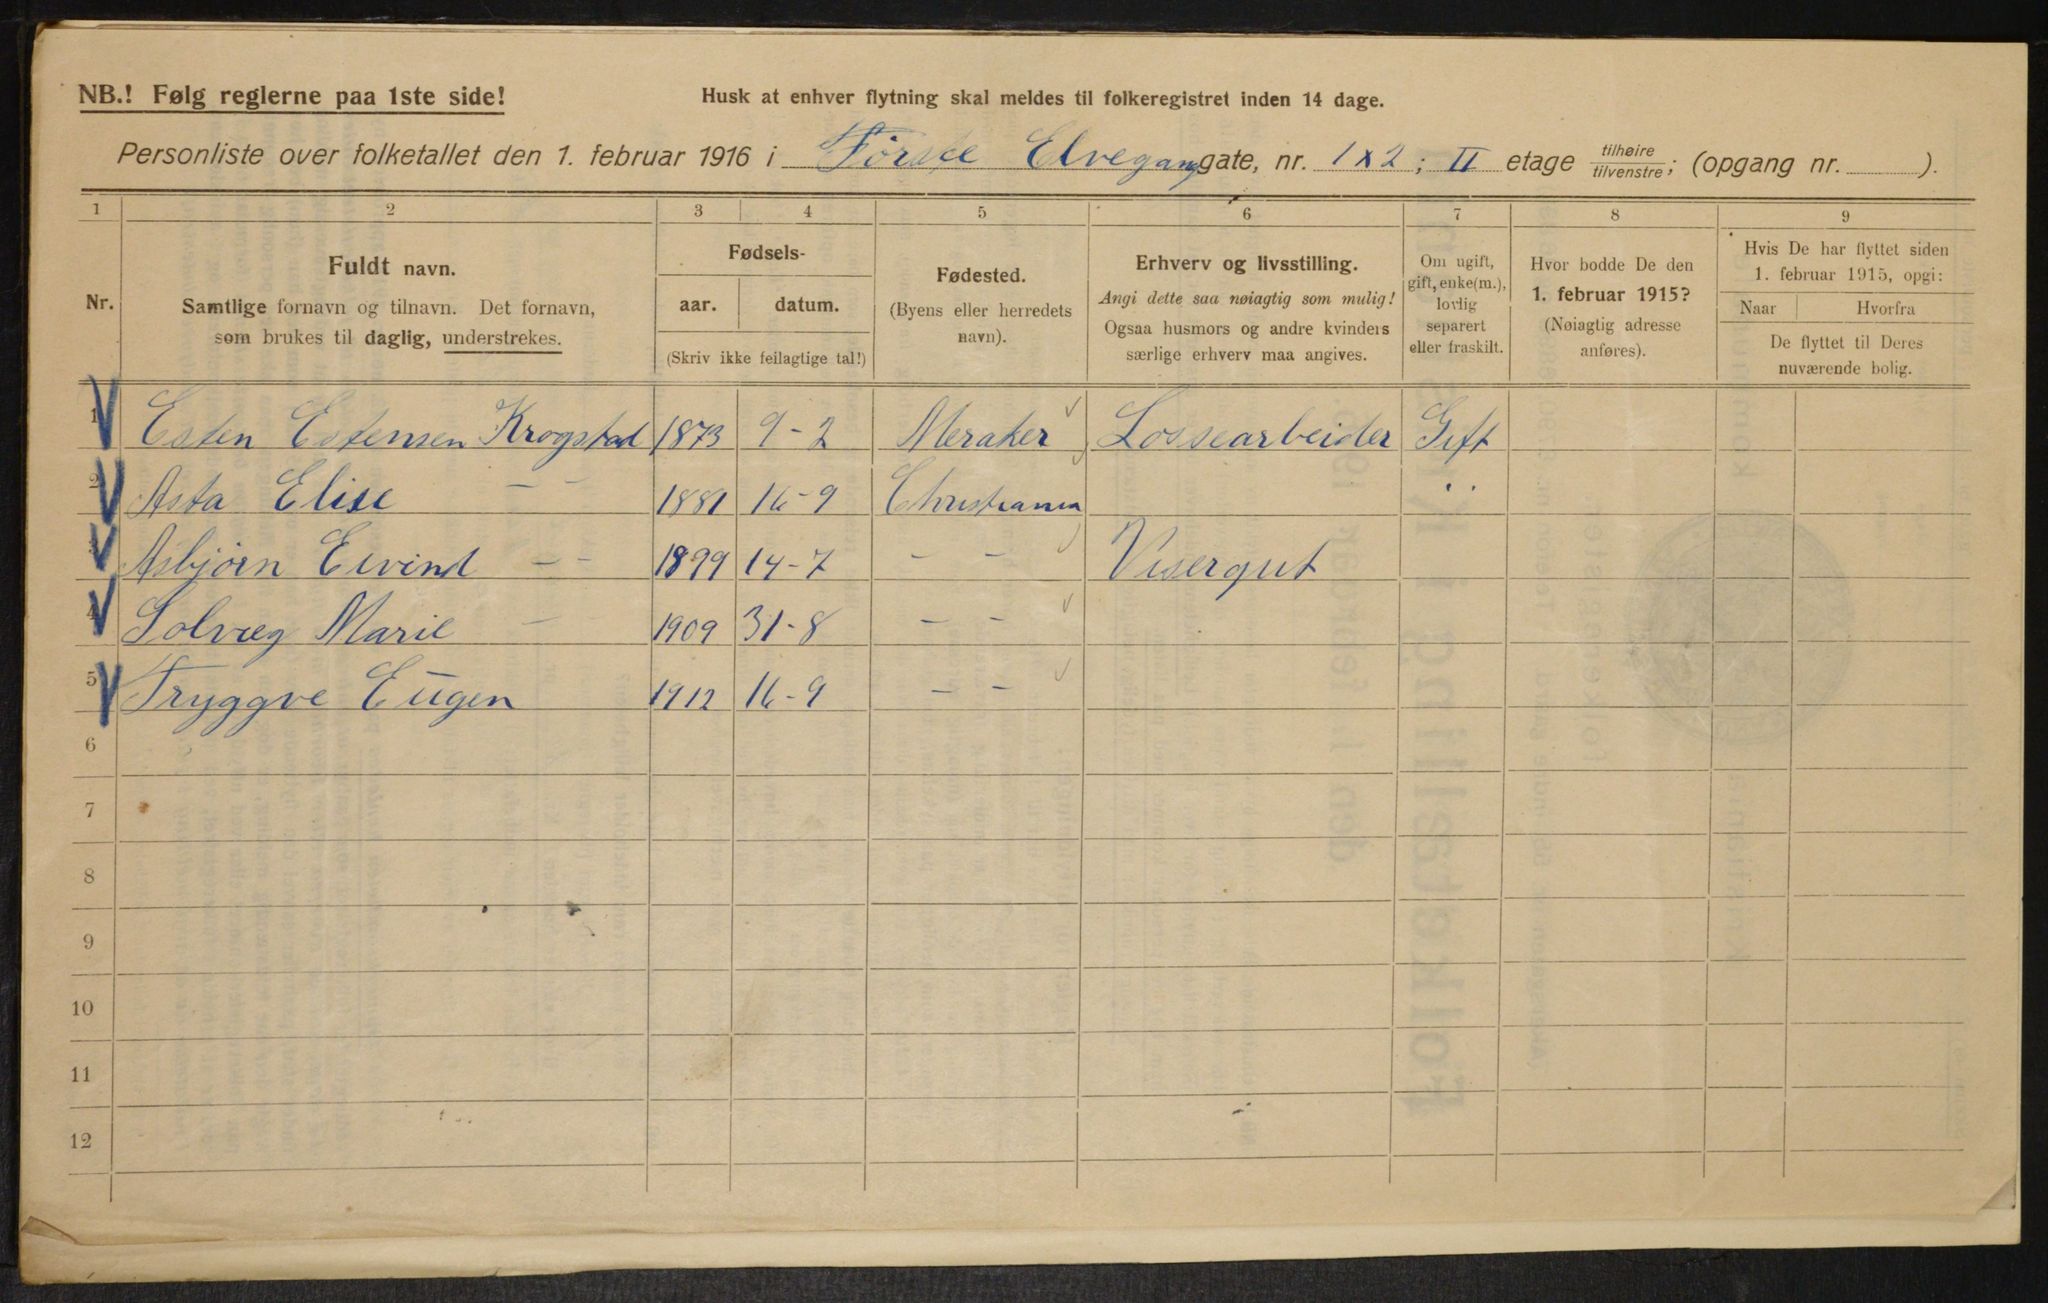 NB.! Følg reglerne paa 1ste side!
Husk at enhver flytning skal meldes til folkeregistret inden 14 dage.
Personliste over folketallet den 1. februar 1916 i Første Elvegang gate, nr. 1 x 2 ; II etage tilhøire/tilvenstre; (opgang nr. ).
1 2 3 4 5 6 7 8 9
Nr.
Fuldt navn.
Samtlige fornavn og tilnavn. Det fornavn,
som brukes til daglig, understrekes.
Fødsels-
aar. datum.
(Skriv ikke feilagtige tal!)
Fødested.
(Byens eller herredets
navn).
Erhverv og livsstilling.
Angi dette saa nøiagtig som mulig!
Ogsaa husmors og andre kvinders
særlige erhverv maa angives.
Om ugift,
gift, enke(m.),
lovlig
separert
eller fraskilt.
Hvor bodde De den
1. februar 1915?
(Nøiagtig adresse
anføres).
Hvis De har flyttet siden
1. februar 1915, opgi:
Naar Hvorfra
De flyttet til Deres
nuværende bolig.
1 Esten Estensen Krogstad 1873 9-2 Meraker Lossearbeider Gift
2 Asta Elise — — 1881 16-9 Christiania "
3 Asbjørn Eivind — — 1899 14-7 — — Visergut
4 Solveg Marie — 1909 31-8 — —
5 Tryggve Eugen 1912 16-9 — —
6
7
8
9
10
11
12